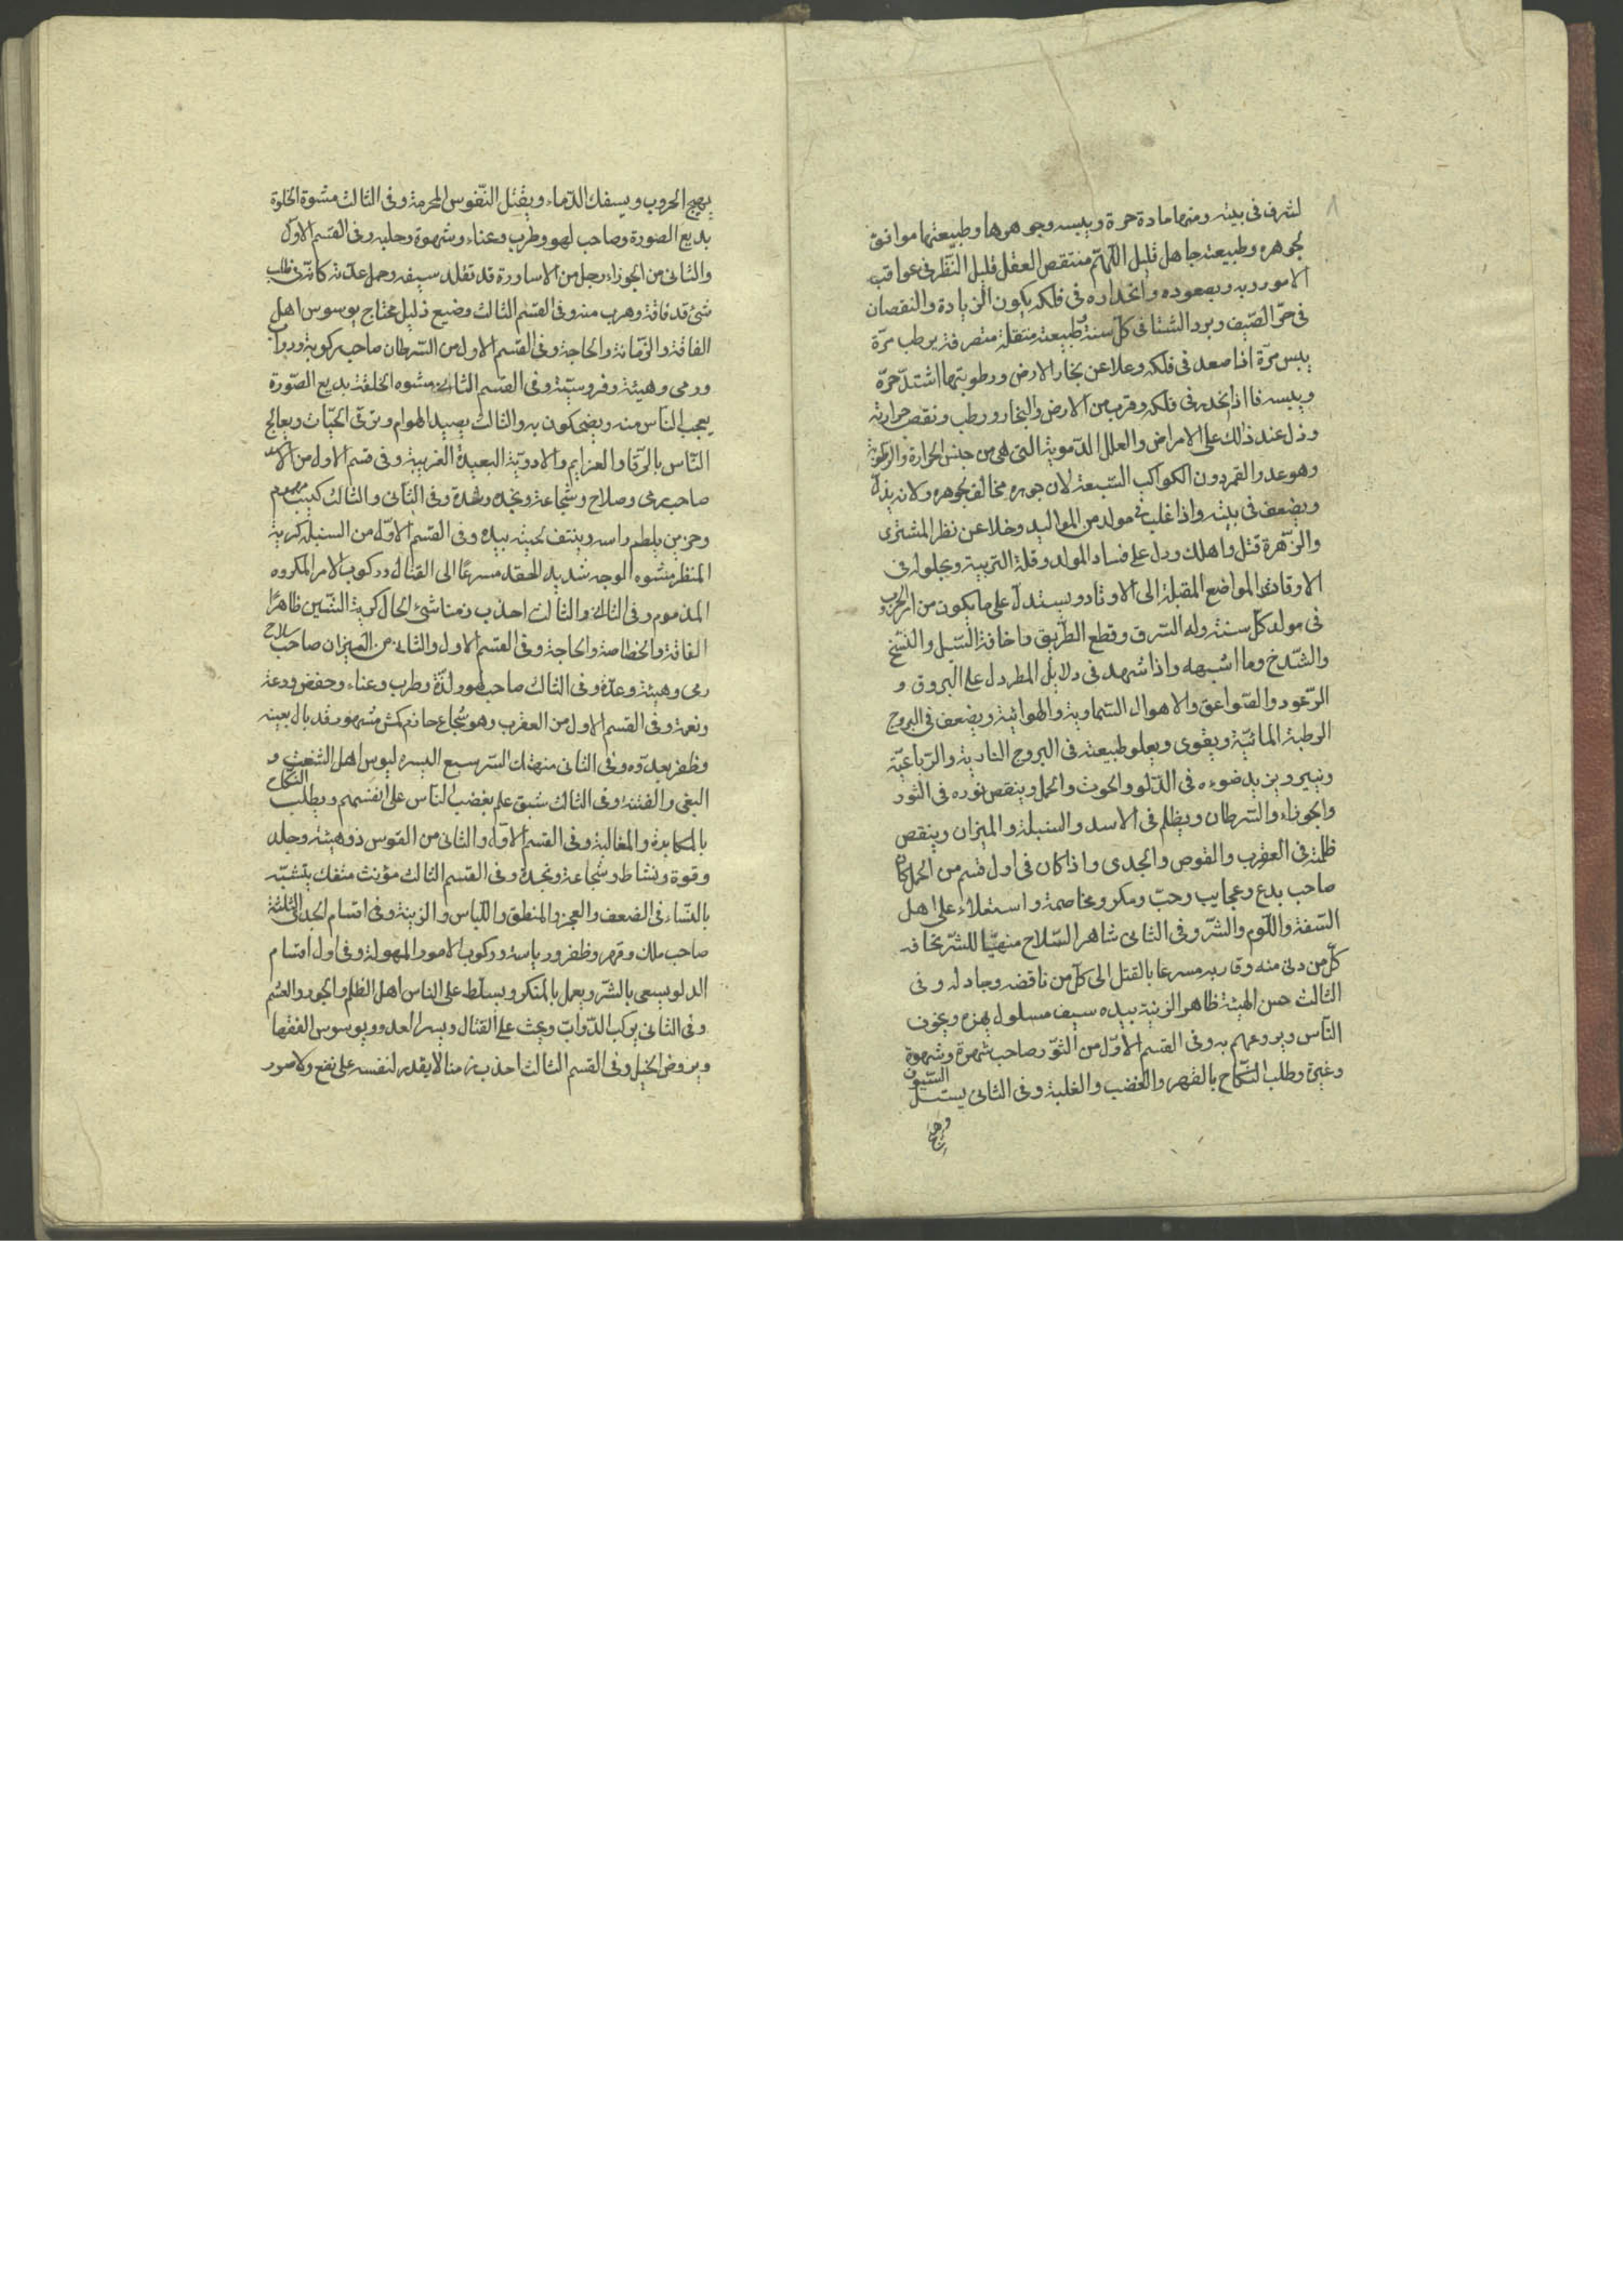 لشرف فى بيته ومنهما مادة حرة ويبسه وجوهرها وطبيعتها موافق
لجوهره وطبيعته جاهل قليل منتقص العقل قليل النّظر فى عواقب
الامور وبه وبصعوده وانحداره فى فلكه يكون الزيادة والنقصان
فى حرّ الصّيف وبرد الشتا فى كلّ سنة وطبيعته متنقلة متصرفة يرطب مرّة
ييبس مرّة اذا صعد فى فلكه وعلا عن بخار الارض ورطوبتها اشتدّ حرّه
ويبسه فااذا انحدر فى فلكه وقرب من الارض والبخار ورطب ونقص حرارته
ودل عند ذالك على الامراض والعلل الدّموية التى هى من جنس الحرارة والرطوبة
وهو عدو القمر دون الكواكب السّبعة لان جوهره مخالف لجوهره ولانه يذلّ
ويضعف فى بيته واذا غلب فى مولد من المواليد وخلا عن نظر المشترى
والزّهرة قتل واهلك ودل على فساد المولد وقلة التربية وبحلوله فى
الاوتاد المواضع المقبلة الى الاوتاد ويستدلّ على ما يكون من امر الحرب
فى مولد كلّ سنة وله السّرق وقطع الطّريق واخافة السّبل والنسّخ
والشّدخ وما اشبهه واذا شهد فى دلايل المطر دل على البروق و
الرّعود والصّواعق والاهوال السّماوية والهوائية ويضعف فى البروج
الرطبة المائيّة ويقوى ويعلو طبيعته فى البروج النارية والرّباعيّة
وينير ويزيد ضوءه فى الدّلو والحوت والحمل وينقص نوره فى الثور
والجوزاء والسّرطان ويظلم فى الاسد والسنبلة والميزان وينقص
ظلمته فى العقرب والقوص والجدى واذا كان فى اول قسم من الحمل كان
صاحب بدع وعجايب وحبّ ومكر ومخاصمة واستعلاء على اهل
السّفة واللّوم والشّر وفى الثانى شاهر السّلاح منهيّا للشرّ يخافه
كلّ من دنى منه وقاربه مسرعا بالقتل الى كلّ من ناقضه وجادله وفى
الثالث حسن الهيئة ظاهر الزينة بيده سيف مسلول يهزه ويخوف
النّاس ويروعهم به وفى القسم الاوّل من الثوّر صاحب شهرة وشهوة
وغيرة وطلب النّكاح بالقهر والغضب والغلبة وفى الثانى يستلّ السّيوف
يهيج الحروب ويسفك الدّماء ويقتل النّفوس المحرمة وفى الثالث مشوة الخلوة
بديع الصورة وصاحب لهو وطرب وغناء وشهوة وحليه وفى القسم الاوّل
والثانى من الجوزاء رجل من الاساورة قد تقلد سيفه وحمل عدّته كانّه فى طلب
شئ قد فاته وهرب منه وفى القسم الثالث وضيع ذليل محتاج يوسوس اهل
الفاقة والزّمانة والحاجة وفى القسم الاول من السّرطان صاحب ركوبة ودوابّ
ورمى وهيئة وفروسيّة وفى القسم الثانى مشوه الخلقة بديع الصّورة
يعجب النّاس منه ويضحكون به والثالث يصيد الهوام ويرقى الحيّات ويعالج
النّاس بالرّقا والعزايم والادويّة البعيدة الغريبة وفى قسم الاول من الاسد
صاحب رمى وصلاح وشجاعة ونجده وشدة وفى الثانى والثالث كئيب مهموم
وحزين يلطم راسه وينتف لحيته بيده وفى القسم الاوّل من السنبلة كريه
المنظر مشوه الوجه شديد الحقد مسرعًا الى القتال وركوب الامر المكروه
المذموم وفى الثانى والثالث احذب زمنا شئ الحال كريه السّنين ظاهرًا
الفاقة والخصاصة والحاجة وفى القسم الاول والثانى من الميزان صاحب سلاح
رمى وهيئة وعدّة وفى الثالث صاحب لهو ولذّة وطرب وغناء وخفض ودعة
ونعمة وفى القسم الاول من العقرب وهو شجاع حازم كمش مشهور قد بال بعينه
وظفر بعدّوه وفى الثانى منهتك السّر سبع اليسره ليوس اهل الشغب و
البغى والفتنة وفى الثالث شبق علم يغضب النّاس على انفسهم ويطلب النّكاح
بالمكابدة والمغالبة وفى القسم الاوّل والثانى من القوس ذو هيئة وجلد
وقوة ونشاط وشجاعة ونجدة وفى القسم الثالث مؤنث متفك يتشبّه
بالنّساء فى الضعف والعجز والمنطق واللّباس والزينة وفى اقسام الجدى الثلثة
صاحب ملك وقهر وظفر ورياسة وركوب الامور المهولة وفى اول اقسام
الدلو يسعى بالشّر ويعمل بالمنكر ويسلّط على الناس اهل الظلم والجور والغشم
وفى الثانى يركب الدّوابّ ويحث على القتال ويسر العدو ويوسوس الفقها
ويروض الخيل وفى القسم الثالث احذب زمنا لا يقدر لنفسه على نفع ولا ضور